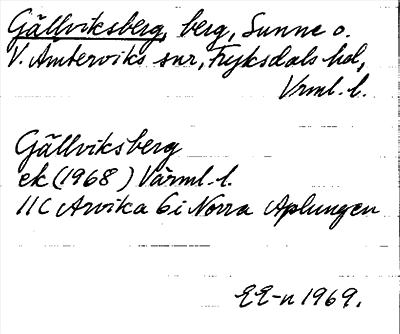 Gällviksberg, berg, Sunne o.
V. Ämterviks snr, Fryksdals hd,
Vrml. l.
Gällviksberg
ek (1968) Värml. l.
11C Arvika 6i Norra Aplungen
EE-n 1969.